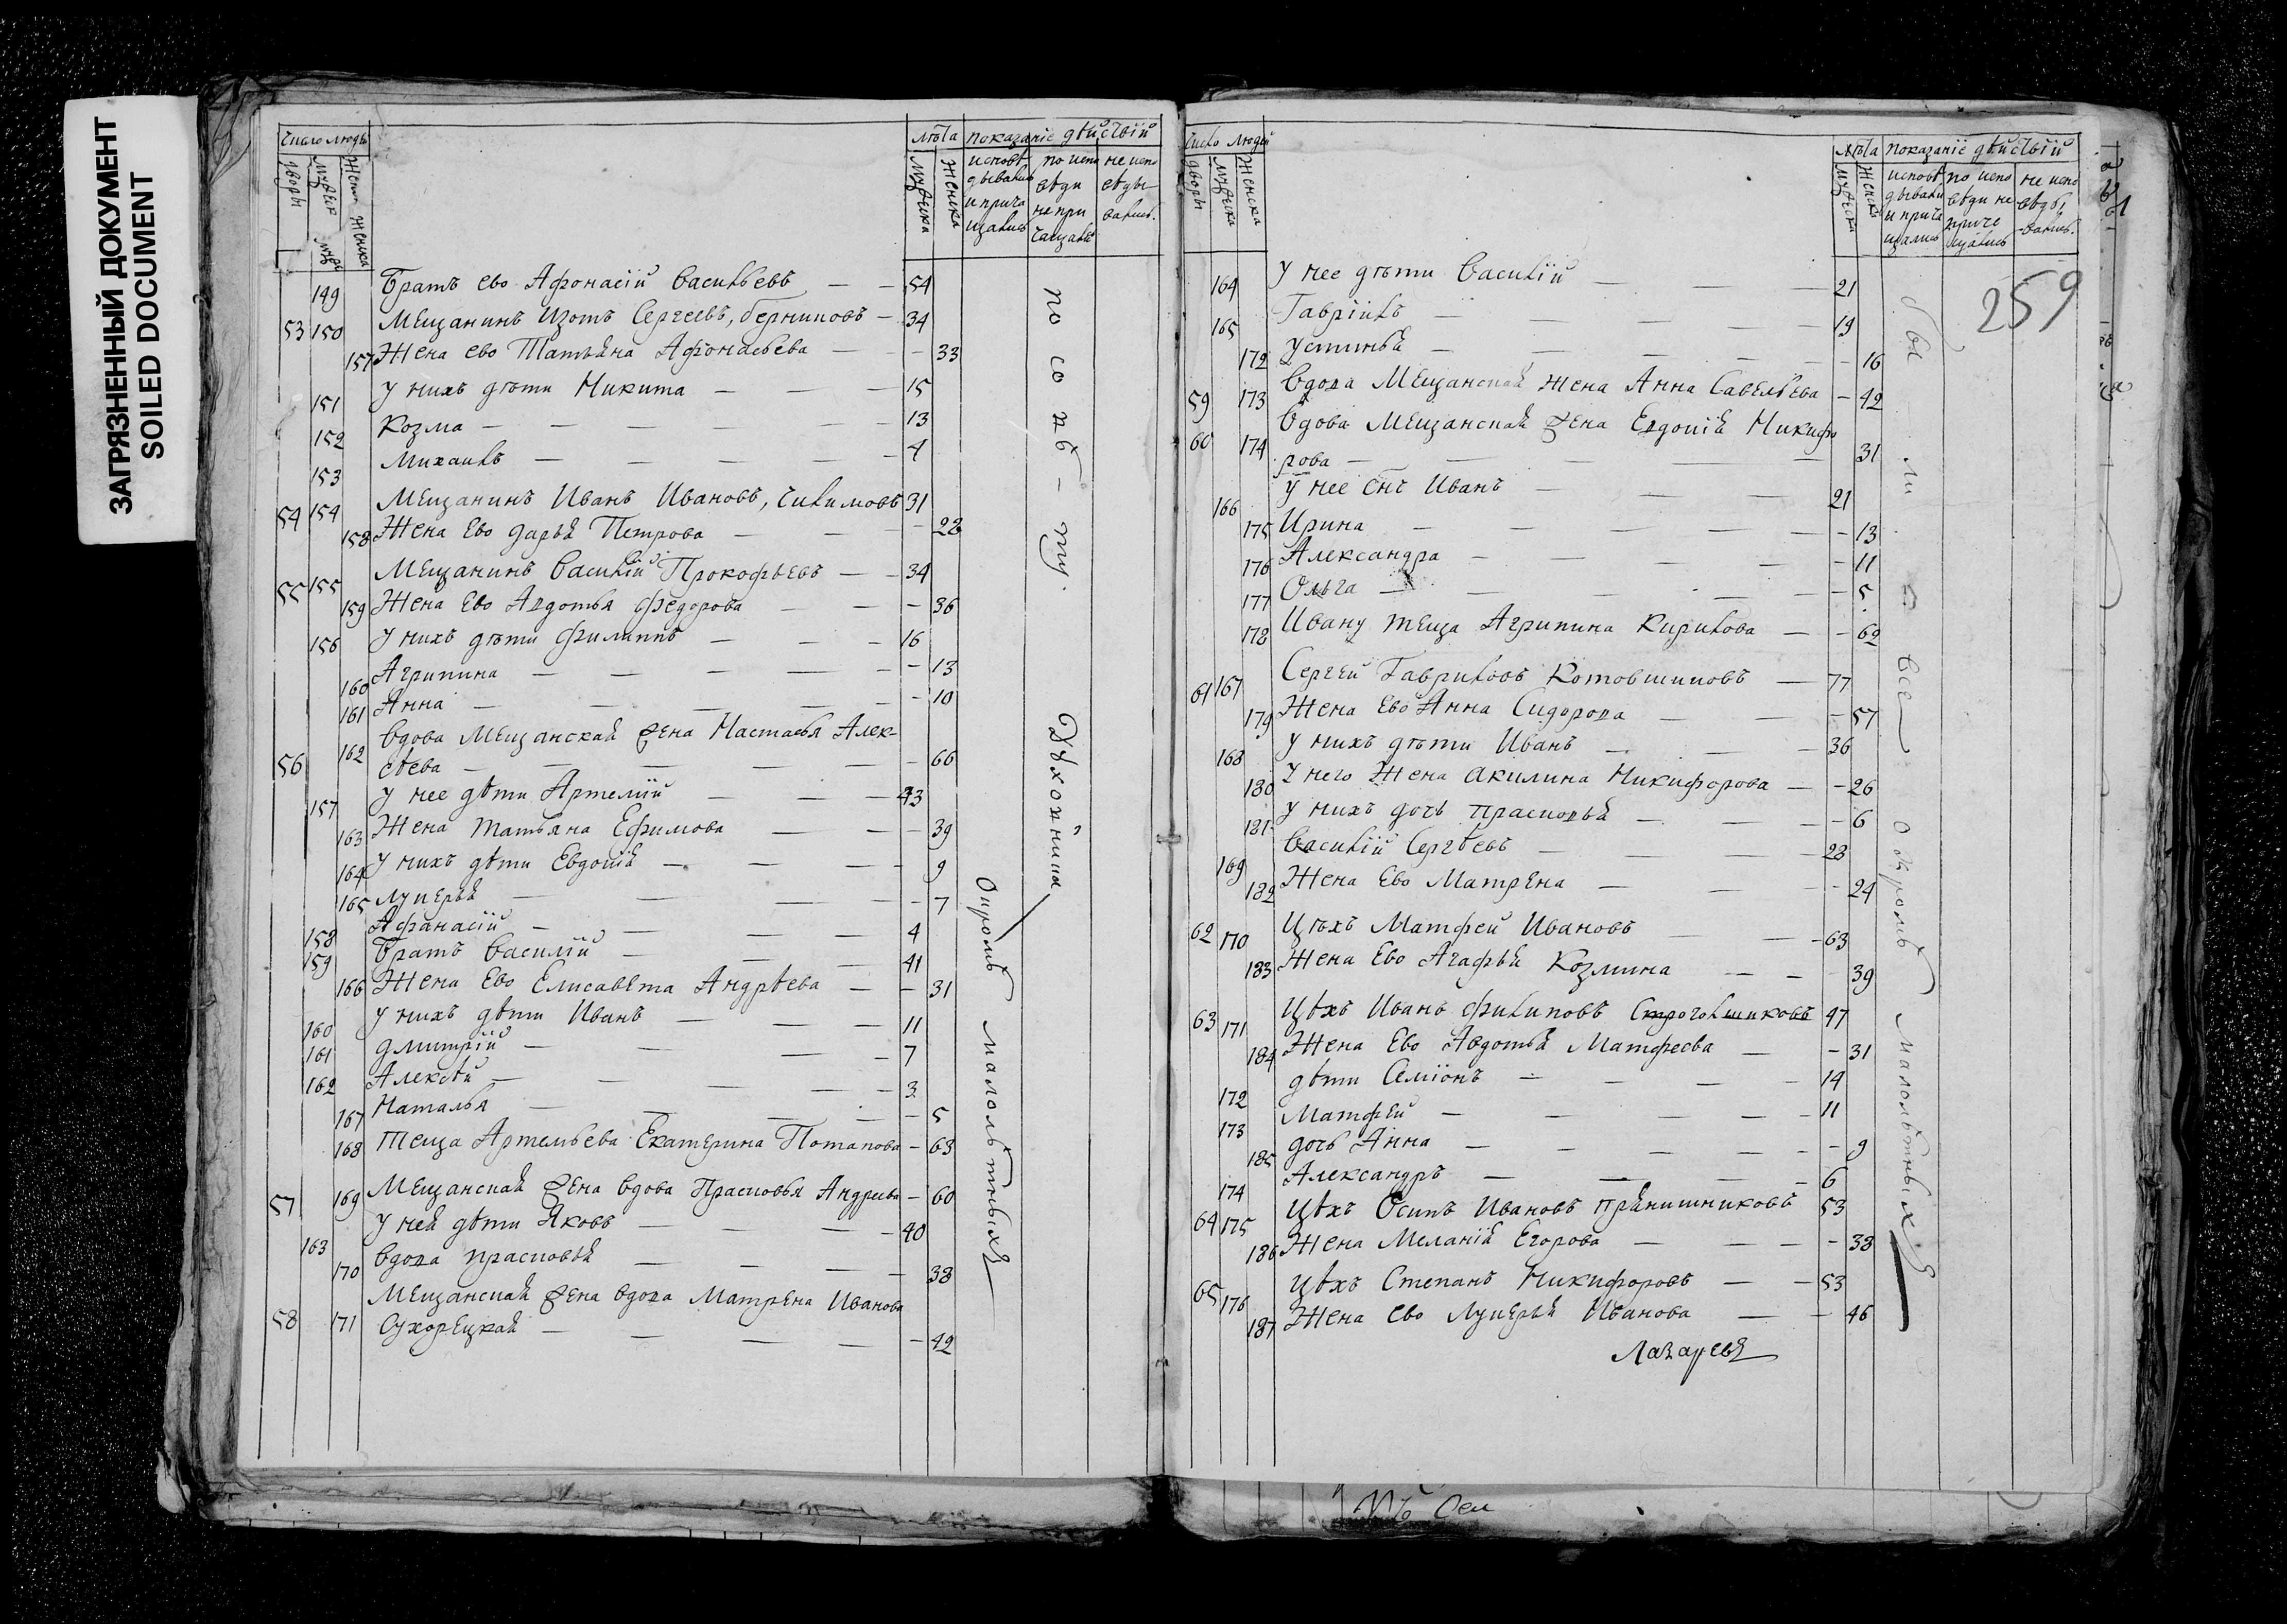 ЗАГРЯЗНЕННЫЙ ДОКУМЕНТ
SOILED DOCUMENT
число людѣй
дворы
мужеск
женска
лѣта
показаніе дѣйствій
мужеска
женска
исповѣдывались и причащались
по исповѣди не причащались
не исповѣдывались.
149 Братъ ево Афонасій Васильевъ — — 54
53 150 Мещанинъ Изотъ Сергеевъ, — 34
157 Жена ево Татьяна Афонасьева — — 33
151 У нихъ дѣти Никита — — — 15
152 Козма — — — — — 13
153 Михаилъ — — — — — 4
54 154 Мещанинъ Иванъ Ивановъ, 31
158 Жена Ево дарья Петрова — — — 22
55 155 Мещанинъ Василій Прокофьевъ — — 34
159 Жена Ево Авдотья федорова — — — 36
156 У нихъ дѣти филиппъ — — — 16
160 Агрипина — — — — — 13
161 Анна — — — — — — 10
56 162 Вдова Мещанская жена Настасья Алек-
сѣева — — — — — — 66
157 У нее дѣти Артемій — — — 43
163 Жена татьяна Ефимова — — — 39
164 У нихъ дѣти Евдокія — — — 9
165 лукерья — — — — — 7
158 Афанасій — — — — 4
159 Братъ Василій — — — 41
166 Жена Ево Елисавета Андрѣева — — 31
160 У нихъ дѣти Иванъ — — — 11
161 дмитрій — — — — 7
162 Алексѣй — — — — — 3
167 Наталья — — — — — 5
168 теща Артемьева Екатерина Потапова — 63
57 169 Мещанская жена вдова Прасковья Андреева — 60
163 У ней дѣти Яковъ — — — — 40
170 вдова прасковья — — — — 38
58 171 Мещанская жена вдова Матрена Иванова
Сухорецкая — — — — — 42
по сокѣ-тку.
Духовника
окромѣ малолѣтныхъ
число людѣй
дворы
мужеска
женска
лѣта
показаніе дѣйствій
мужеска
женска
исповѣдывались и причащались
по исповѣди не причащались
не исповѣдывались.
259
164 У нее дѣти Василій — — — 21
165 Гавріилъ — — — — — 19
172 устинья — — — — — — 16
59 173 Вдова Мещанская жена Анна Савельева — 42
60 174 Вдова Мещанская жена Евдокія Никифо
рова — — — — — 31
166 У нее снъ Иванъ — — — 21
175 Ирина — — — — — — 13
176 Александра — — — — — 11
177 Ольга — — — — — — 5
178 Ивану теща Агрипина Кирилова — — 62
61 167 Сергей Гавриловъ Котовщиковъ — 77
179 Жена Ево Анна Сидорова — — — 57
168 У нихъ дѣти Иванъ — — — 36
180 У него Жена акилина Никифорова — — 26
181 У нихъ дочь прасковья — — — — 6
169 Василій Сергѣевъ — — — — 23
182 Жена Ево Матрена — — — 24
62 170 Цѣхъ Матфей Ивановъ — — — 63
183 Жена Ево Агафья Козмина — — 39
63 171 Цѣхъ Иванъ филиповъ 47
184 Жена Ево Авдотья Матфеева — — 31
172 дѣти Семіонъ — — — — 14
173 Матфей — — — — — 11
185 дочь Анна — — — — — — 9
174 Александръ — — — — 6
64 175 Цѣхъ Осипъ Ивановъ прянишниковъ 53
186 Жена Меланія Егорова — — — — 33
65 176 Цѣхъ Степанъ Никифоровъ — — 53
187 Жена ево Лукерья Иванова — — 46
были все окромѣ малолѣтныхъ
Лазаревъ